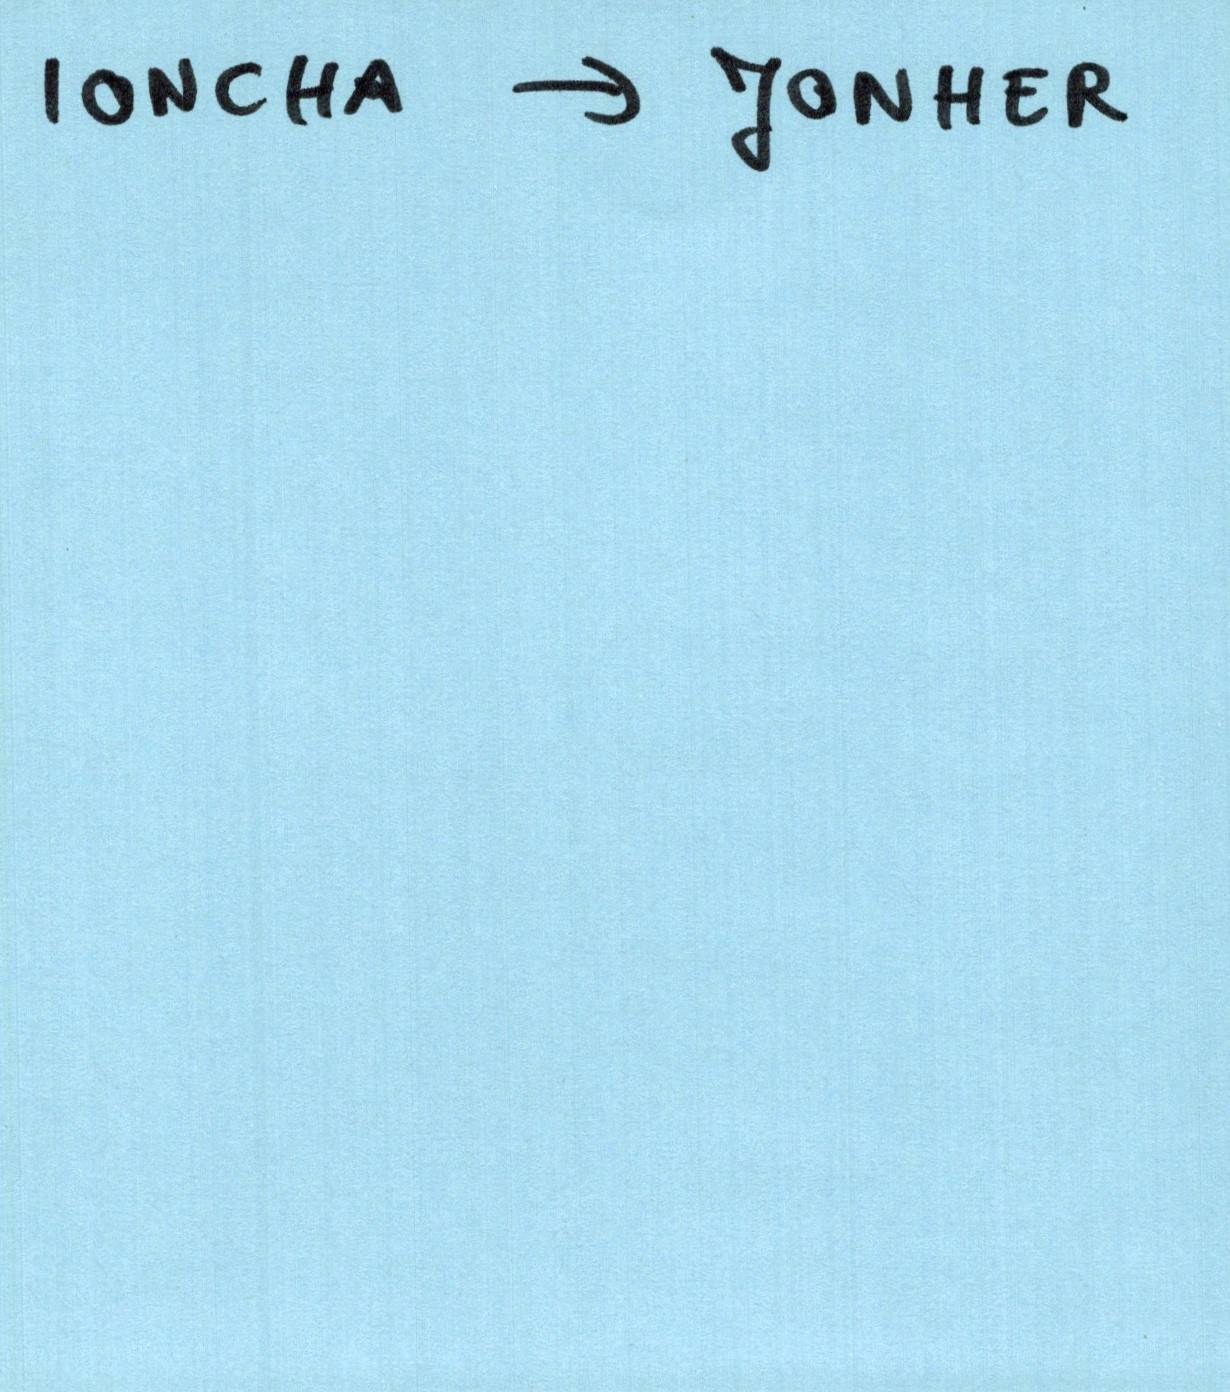 IONCHA → JONHER